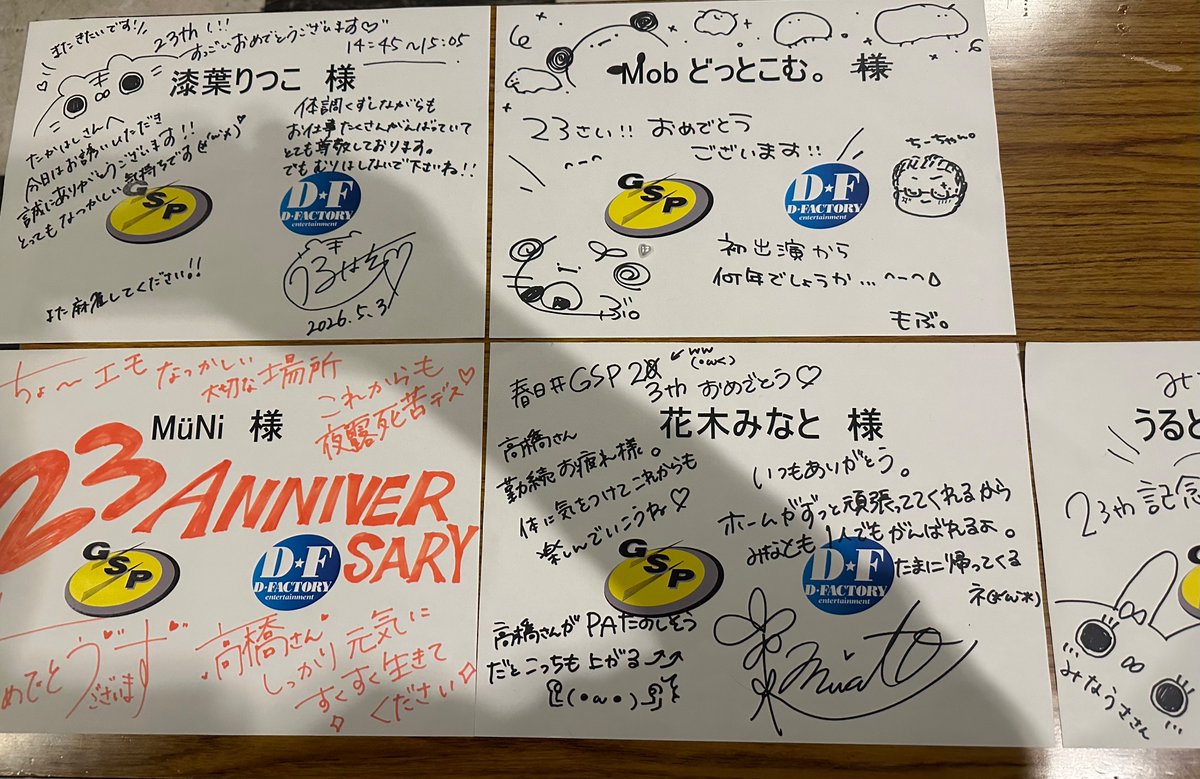 またきたいです!
23th!!
すっごいおめでとうございます♡
14:45〜15:05
漆葉りつこ 様
たかはしさんへ
今日はお誘いいただき
誠にありがとうございます!!
とってもなつかしい気持ちです
体調くずしながらも
お仕事たくさんがんばっていて
とても尊敬しております。
でもむりはしないで下さいね!!
GSP
D★F
D・FACTORY
entertainment
また麻雀してください!!
2026.5.3
Mobどっとこむ。 様
23さい!! おめでとう
ございます!!
ちーちゃん。
GSP
D★F
D・FACTORY
entertainment
初出演から
何年でしょうか…
ぶ。
もぶ。
ちょ〜エモ なつかしい
大切な場所
これからも
夜露死苦デス♡
MüNi 様
23 ANNIVER
SARY
GSP
D★F
D・FACTORY
entertainment
めでとう
ございます
高橋さん
しっかり元気に
すくすく生きて
ください
春日井GSP 2
3th おめでとう♡
ww
(・ω<)
花木みなと 様
高橋さん
勤続お疲れ様。
体に気をつけてこれからも
楽しんでいこうね♡
いつもありがとう。
ホームがずっと頑張っててくれるから
みなとも1人でもがんばれるよ。
たまに帰ってくる
ネ(*'ω'*)
GSP
D★F
D・FACTORY
entertainment
高橋さんがPAたのしそう
だとこっちも上がる↗↗
(・ω・)
Minato
み
うると
23th 記念
みなうささん